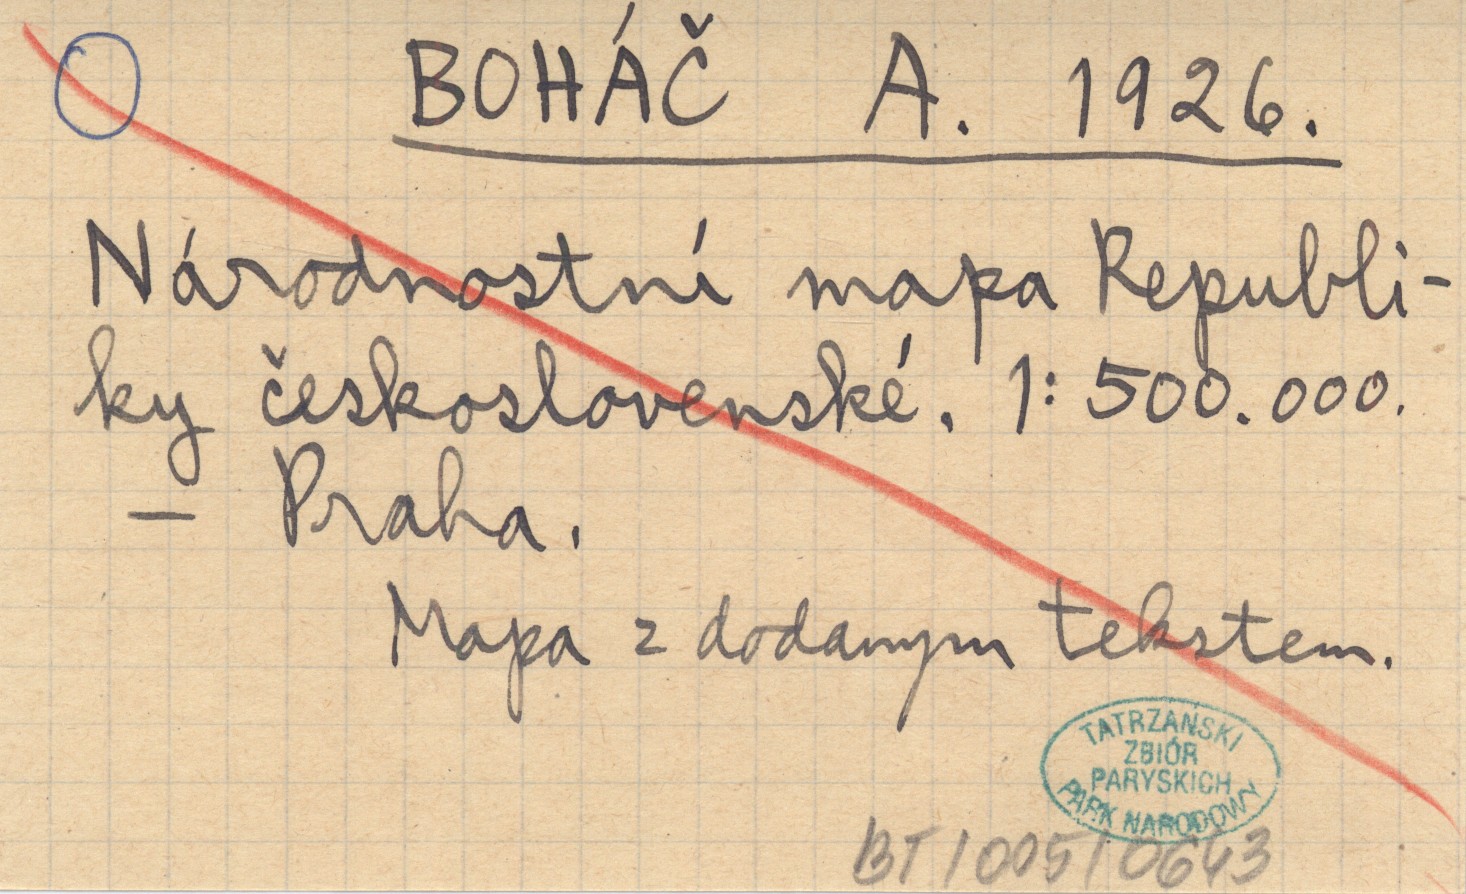 BOHÁČ A. 1926.
Národnostní mapa Republi-
ky československé. 1:500.000.
— Praha.
Mapa z dodanym tekstem.
TATRZAŃSKI
ZBIÓR
PARYSKICH
PARK NARODOWY
BT/005/0643